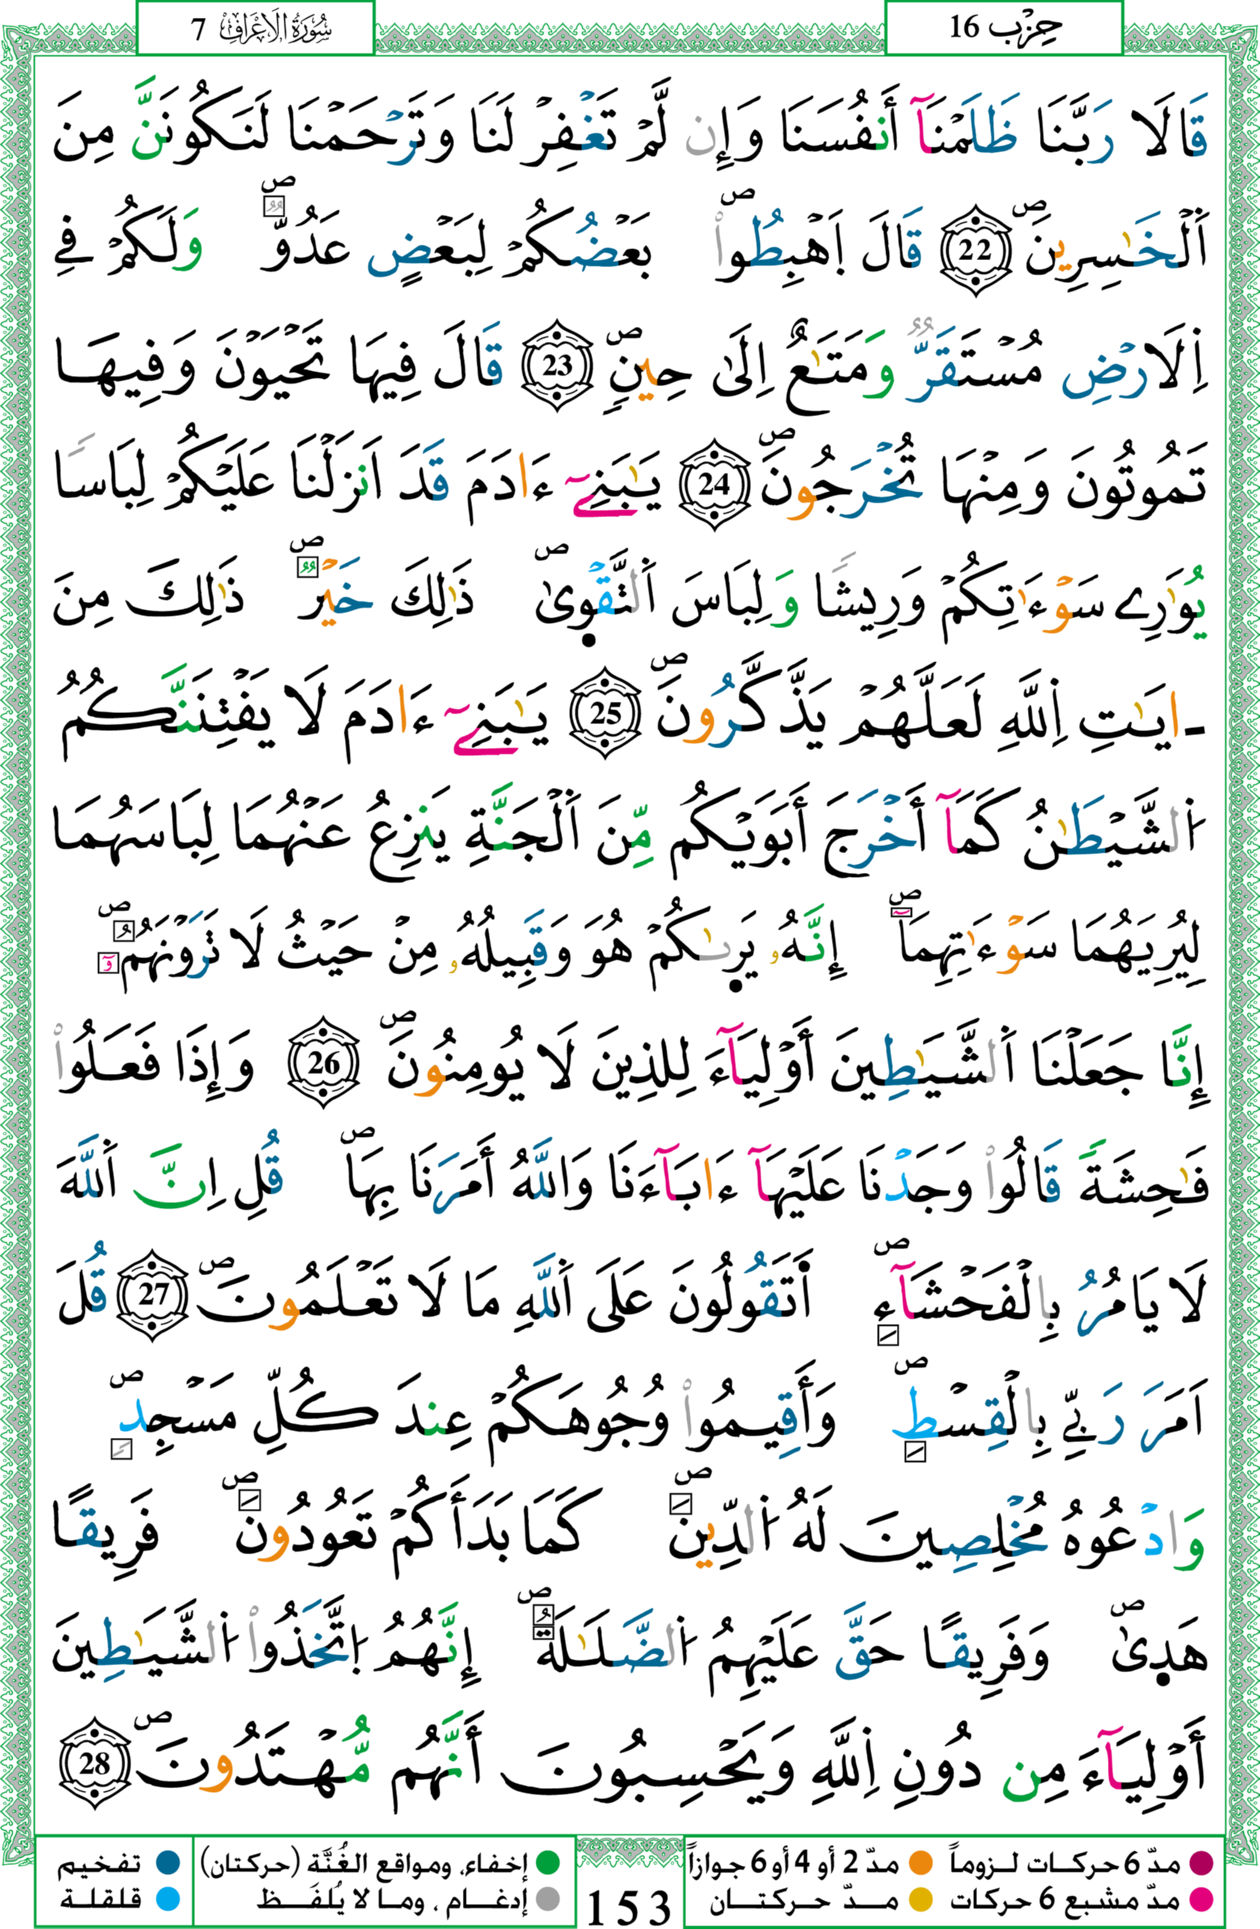 سُورَةُ الْأَعْرَافِ 7
حِزْب 16
قَالَا رَبَّنَا ظَلَمْنَآ أَنفُسَنَا وَإِن لَّمْ تَغْفِرْ لَنَا وَتَرْحَمْنَا لَنَكُونَنَّ مِنَ
اَ۬لْخَٰسِرِينَۖ 22 قَالَ اَ۪هْبِطُواْۖ بَعْضُكُمْ لِبَعْضٍ عَدُوّٞۖ وَلَكُمْ فِے
اِ۬لَارْضِ مُسْتَقَرّٞ وَمَتَٰعٌ اِلَىٰ حِينٖۖ 23 قَالَ فِيهَا تَحْيَوْنَ وَفِيهَا
تَمُوتُونَ وَمِنْهَا تُخْرَجُونَۖ 24 يَٰبَنِےٓ ءَادَمَ قَدَ اَنزَلْنَا عَلَيْكُمْ لِبَاسٗا
يُوَٰرِے سَوْءَٰتِكُمْ وَرِيشٗا وَلِبَاسَ اَ۬لتَّقْوٜىٰۖ ذَٰلِكَ خَيْرٞۖ ذَٰلِكَ مِنَ
ـ۪ايَٰتِ اِ۬للَّهِ لَعَلَّهُمْ يَذَّكَّرُونَۖ 25 يَٰبَنِےٓ ءَادَمَ لَا يَفْتِنَنَّكُمُ
اُ۬لشَّيْطَٰنُ كَمَآ أَخْرَجَ أَبَوَيْكُم مِّنَ اَ۬لْجَنَّةِ يَنزِعُ عَنْهُمَا لِبَاسَهُمَا
لِيُرِيَهُمَا سَوْءَٰتِهِمَآۖ إِنَّهُۥ يَرٜىٰكُمْ هُوَ وَقَبِيلُهُۥ مِنْ حَيْثُ لَا تَرَوْنَهُمُۥٓۖ
إِنَّا جَعَلْنَا اَ۬لشَّيَٰطِينَ أَوْلِيَآءَ لِلذِينَ لَا يُومِنُونَۖ 26 وَإِذَا فَعَلُواْ
فَٰحِشَةٗ قَالُواْ وَجَدْنَا عَلَيْهَآ ءَابَآءَنَا وَاللَّهُ أَمَرَنَا بِهَاۖ قُلِ اِنَّ اَ۬للَّهَ
لَا يَامُرُ بِالْفَحْشَآءِۖ اَتَقُولُونَ عَلَى اَ۬للَّهِ مَا لَا تَعْلَمُونَۖ 27 قُلَ
اَمَرَ رَبِّے بِالْقِسْطِۖ وَأَقِيمُواْ وُجُوهَكُمْ عِندَ كُلِّ مَسْجِدٖۖ
وَادْعُوهُ مُخْلِصِينَ لَهُ اُ۬لدِّينَۖ كَمَا بَدَأَكُمْ تَعُودُونَۖ فَرِيقاً
هَدٜىٰۖ وَفَرِيقًا حَقَّ عَلَيْهِمُ اُ۬لضَّلَٰلَةُۖ إِنَّهُمُ اُ۪تَّخَذُواْ اُ۬لشَّيَٰطِينَ
أَوْلِيَآءَ مِن دُونِ اِ۬للَّهِ وَيَحْسِبُونَ أَنَّهُم مُّهْتَدُونَۖ 28
مدّ 6 حركات لـزوماً مدّ 2 أو 4 أو 6 جوازاً
مدّ مشبع 6 حركات مـدّ حـركتـان
153
إخفاء، ومواقع الغُنَّة (حركتان)
إدغـام ، ومـا لا يُلفَـظ
تفخيم
قلقلة